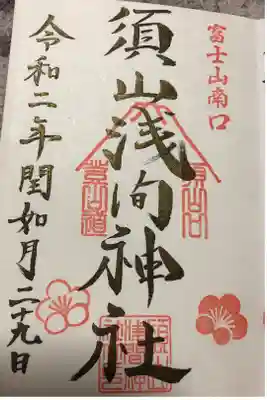 富士山南口
須山浅间神社
令和二年閏如月二十九日